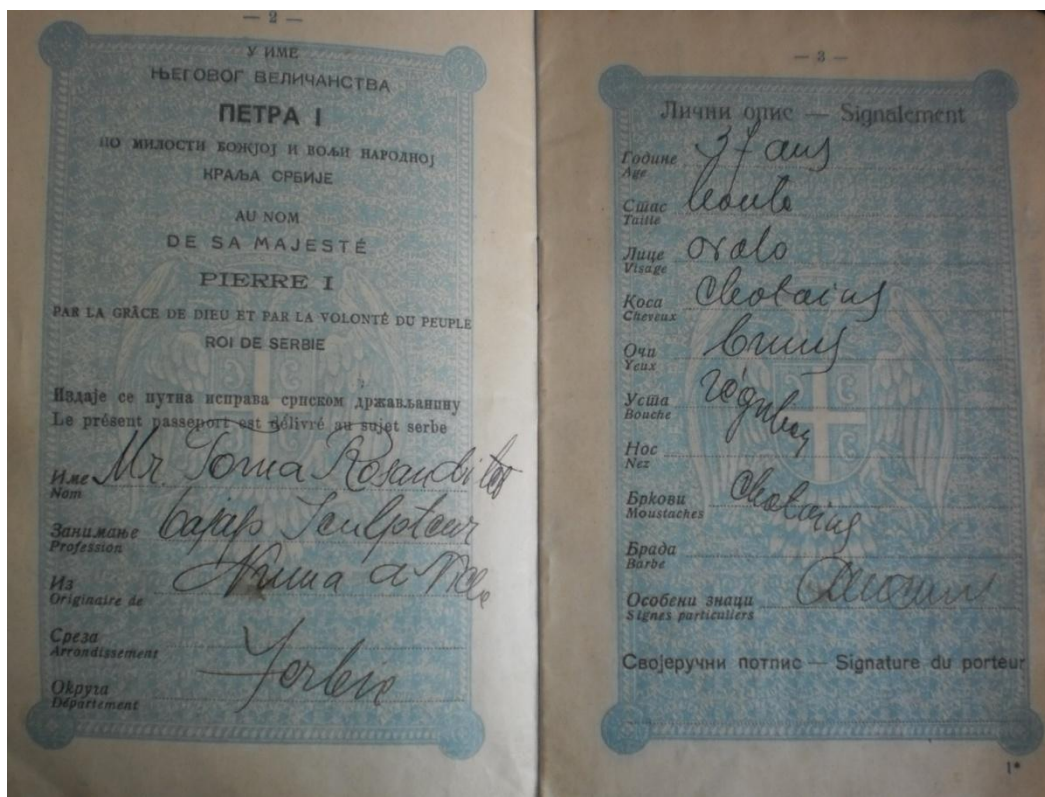 — 2 —
У ИМЕ
ЊЕГОВОГ ВЕЛИЧАНСТВА
ПЕТРА I
ПО МИЛОСТИ БОЖЈОЈ И ВОЉИ НАРОДНОЈ
КРАЉА СРБИЈЕ
AU NOM
DE SA MAJESTÉ
PIERRE I
PAR LA GRÂCE DE DIEU ET PAR LA VOLONTÉ DU PEUPLE
ROI DE SERBIE
Издаје се путна исправа српском држављанину
Le présent passeport est délivré au sujet serbe
Име Mr. Toma
Nom
Занимање вајар Sculpteur
Profession
Из
Originaire de
Среза
Arrondissement
Округа Serbie
Département
— 3 —
Лични опис — Signalement
Године 37 ans
Age
Стас haute
Taille
Лице ovale
Visage
Коса chatains
Cheveux
Очи bruns
Yeux
Уста
Bouche
Нос
Nez
Бркови chatains
Moustaches
Брада
Barbe
Особени знаци
Signes particuliers
Својеручни потпис — Signature du porteur
1*